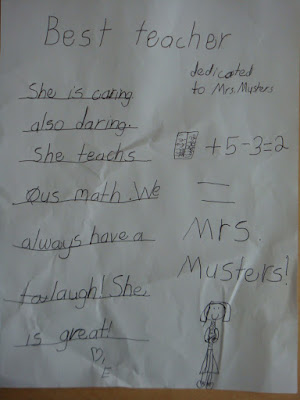 Best teacher
dedicated
to Mrs. Musters
She is caring
also daring.
She teachs
us math. We
always have a
laugh! She
is great!
E
+5-3=2
=
Mrs.
Musters!